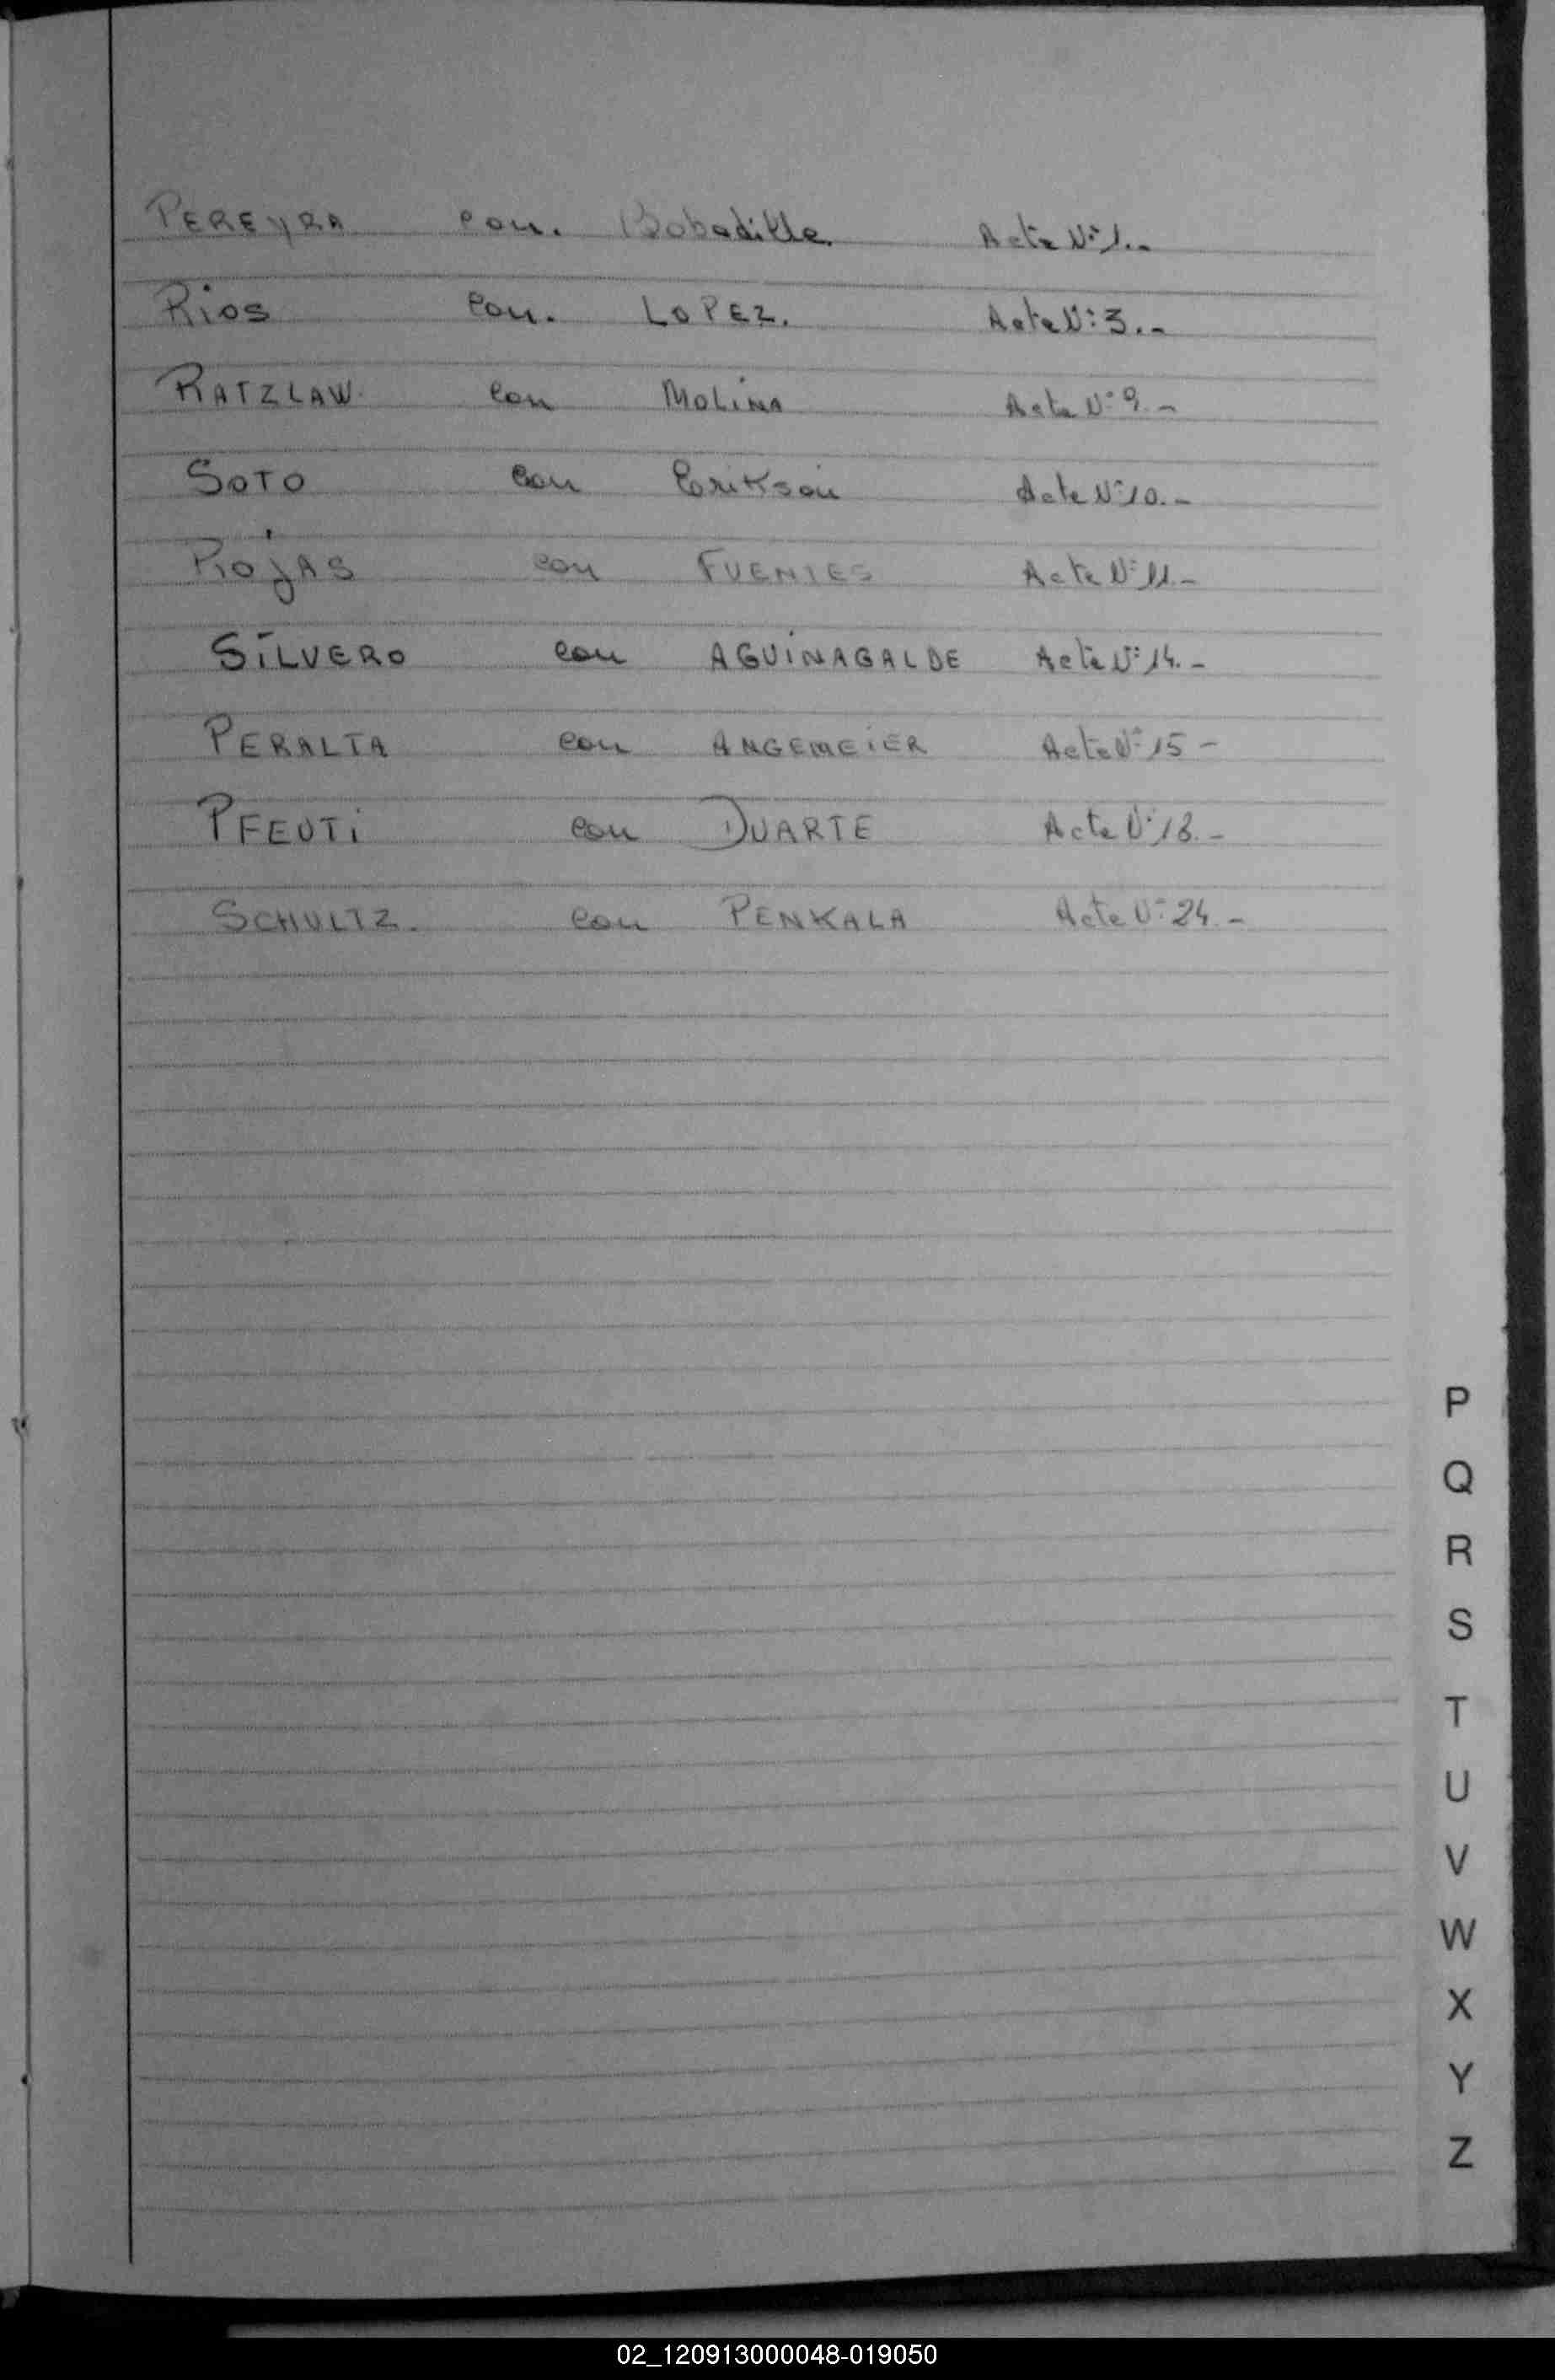 PEREYRA con. Bobadilla Acta Nº 1.-
Rios con. LOPEZ. Acta Nº 3.-
RATZLAW. con MOLINA Acta Nº 9.-
SOTO con Erikson Acta Nº 10.-
ROjAS con FUENTES Acta Nº 11.-
SiLVERO con AGUiNAGALDE Acta Nº 14.-
PERALTA con ANGEMEiER Acta Nº 15-
PFEUTi con DUARTE Acta Nº 18.-
SCHULTZ. con PENKALA Acta Nº 24.-
P
Q
R
S
T
U
V
W
X
Y
Z
02_120913000048-019050